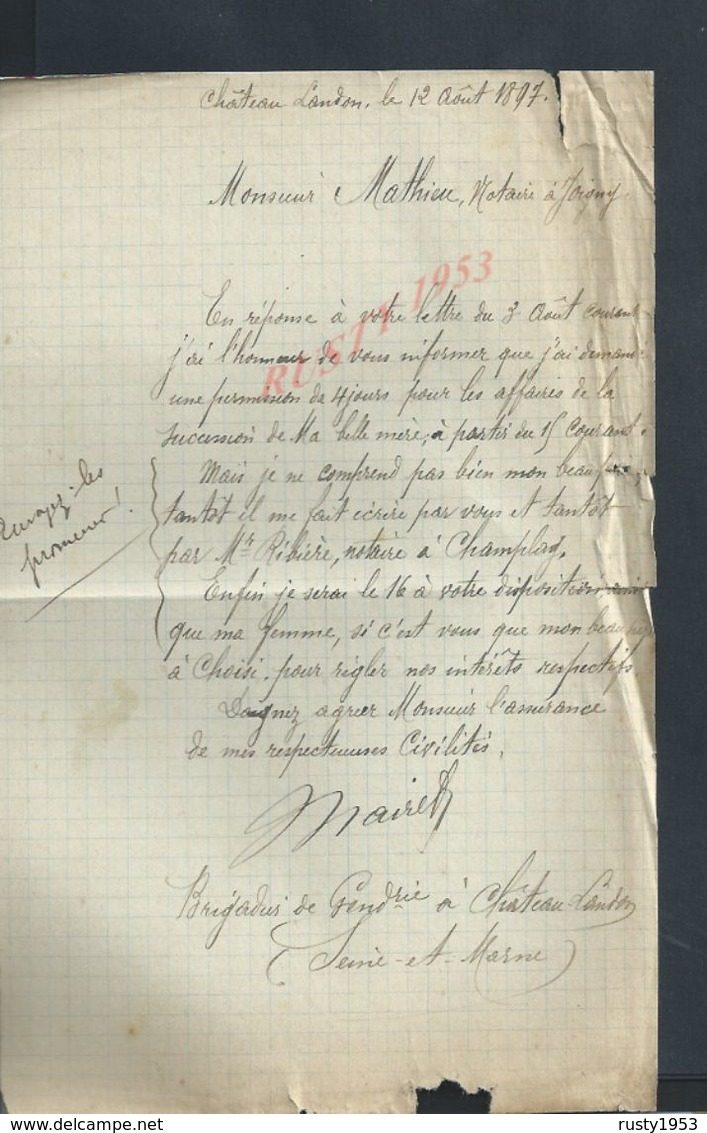 Château Landon, le 12 Août 1897.
Monsieur Mathieu, Notaire à Joigny.
En réponse à votre lettre du 3 Août courant
j'ai l'honneur de vous informer que j'ai demandé
une permission de 4 jours pour les affaires de la
succession de Ma belle mère, à partir du 15 Courant.
Mais je ne comprend pas bien mon beau père,
tantôt il me fait écrire par vous et tantôt
par Mr Ribière, notaire à Champlay.
Envoyez-les
promener !
Enfin je serai le 16 à votre disposition, ainsi
que ma femme, si c'est vous que mon beau père
à Choisi, pour régler nos intérêts respectifs.
Daignez agréer Monsieur l'assurance
de mes respectueuses Civilités.
Mairet
Brigadier de Gendrie à Château-Landon
(Seine-et-Marne)
RUSTY 1953
rusty1953